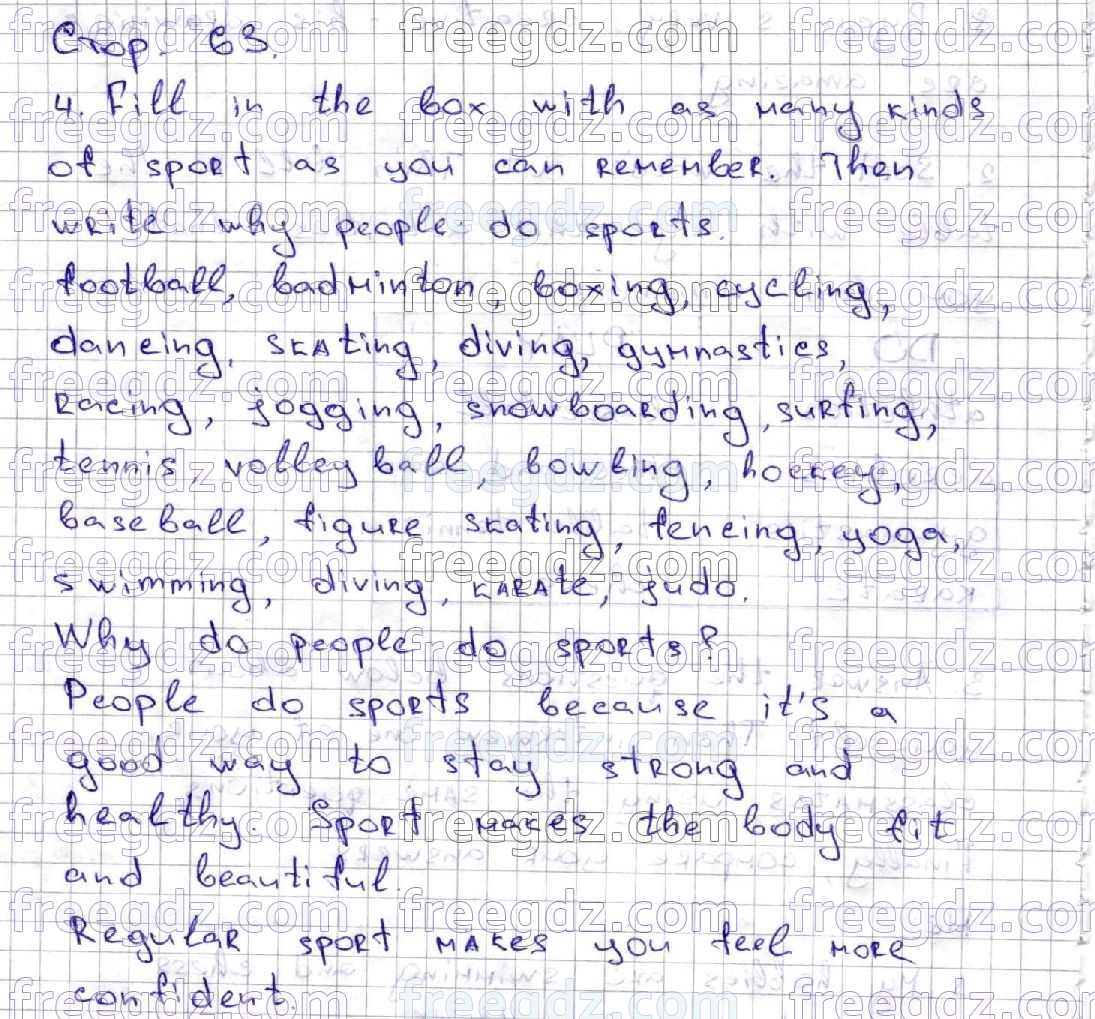 Стор. 63.
4. Fill in the box with as many kinds
of sport as you can remember. Then
write why people do sports.
football, badminton, boxing, cycling,
dancing, skating, diving, gymnastics,
racing, jogging, snowboarding, surfing,
tennis, volleyball, bowling, hockey,
baseball, figure skating, fencing, yoga,
swimming, diving, karate, judo.
Why do people do sports?
People do sports because it's a
good way to stay strong and
healthy. Sport makes the body fit
and beautiful.
Regular sport makes you feel more
confident.
freegdz.com